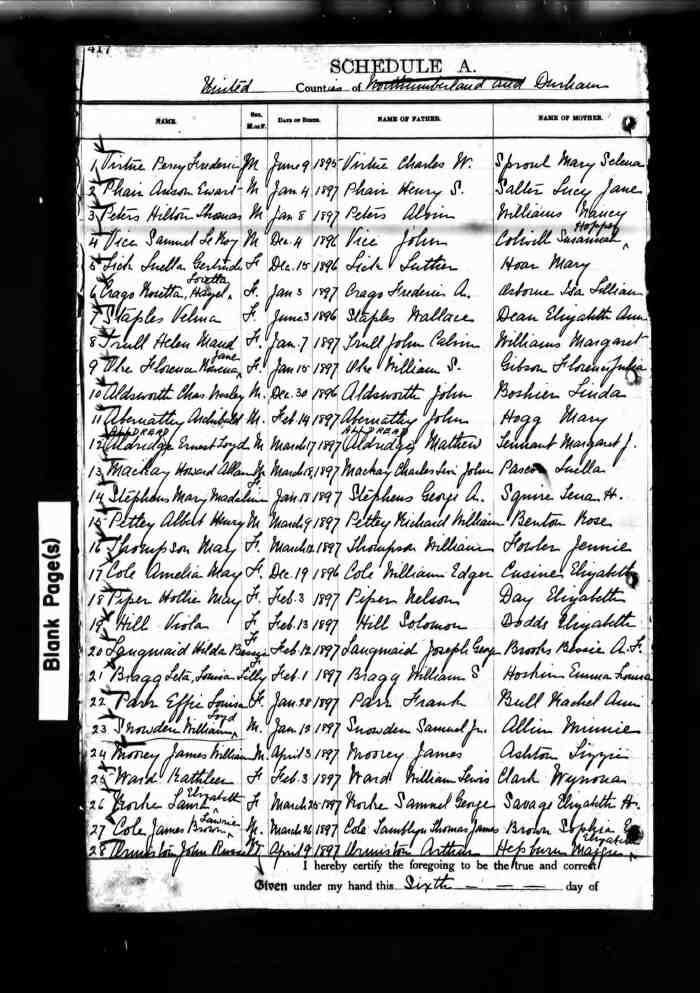 417
SCHEDULE A.
United Counties of Northumberland and Durham
NAME. Sex. M. or F. DATE OF BIRTH. NAME OF FATHER. NAME OF MOTHER.
1 Virtue Percy Frederic M June 9 1895 Virtue Charles W. Sproul Mary Selena
2 Phair Anson Ewart M. Jan. 4 1897 Phair Henry S. Salter Lucy Jane
3 Peters Hilton Thomas M Jan 8 1897 Peters Albin Williams Nancy
Hopper
4 Vice Samuel Le Roy M Dec. 4 1896 Vice John Colwill Susannah
5 Luella Gertrude F. Dec. 15 1896 Luther Hoar Mary
Loretta
6 Crago Hazel F. Jan 3 1897 Crago Frederic A. Osborne Isa Lillian
7 Staples Velma F. June 3 1896 Staples Wallace Dean Elizabeth Ann
8 Trull Helen Maud F. Jan. 7 1897 Trull John Calvin Williams Margaret
Jane
9 Oke Florence F. Jan 15 1897 Oke William S. Gibson Florence Julia
10 Aldsworth Chas. Wesley M. Dec. 30 1896 Aldsworth John Boshier Linda
11 Abernathy Archibald M. Feb. 14 1897 Abernathy John Hogg Mary
ALLDREAD ALLDREAD
12 Aldridge Ernest Loyd M March 17 1897 Aldridge Mathew Tennant Margaret J.
13 Mackay Howard Allan M March 18 1897 Mackay Charles Levi John Pascoe Luella
14 Stephens Mary Madeline F Jan 18 1897 Stephens George A. Squire Lena H.
15 Petley Albert Henry M March 9 1897 Petley Richard William Benton Rose
16 Thompson Mary F. March 12 1897 Thompson William Fowler Jennie
17 Cole Amelia May F. Dec. 19 1896 Cole William Edgar Cusine Elizabeth
18 Piper Hollie May F. Feb. 3 1897 Piper Nelson Day Elizabeth
19 Hill Viola F Feb. 13 1897 Hill Solomon Dodds Elizabeth
20 Langmaid Hilda Bessie F Feb 12 1897 Langmaid Joseph George Brooks Bessie A. F.
21 Bragg Leta, Louisa Lilly F Feb. 1 1897 Bragg William S Hoskin Emma Louisa
22 Parr Effie Louisa F. Jan. 28 1897 Parr Frank Bull Rachel Ann
Loyd
23 Snowden William M. Jan. 12 1897 Snowden Samuel Jr. Allin Minnie
24 Moorey James William M. April 3 1897 Moorey James Ashton Lizzie
25 Ward Kathleen F Feb. 3 1897 Ward William Lewis Clark Wynona
Elizabeth
26 Rorke Laura F March 25 1897 Rorke Samuel George Savage Elizabeth H.
Lawrie
27 Cole James Brown M. March 26 1897 Cole Tamblyn Thomas James Brown Sophia E
Elizabeth
28 Ormiston John Russell M April 9 1897 Ormiston Arthur Hepburn Maggie
I hereby certify the foregoing to be the true and correct
Given under my hand this Sixth — — — day of
Blank Page(s)